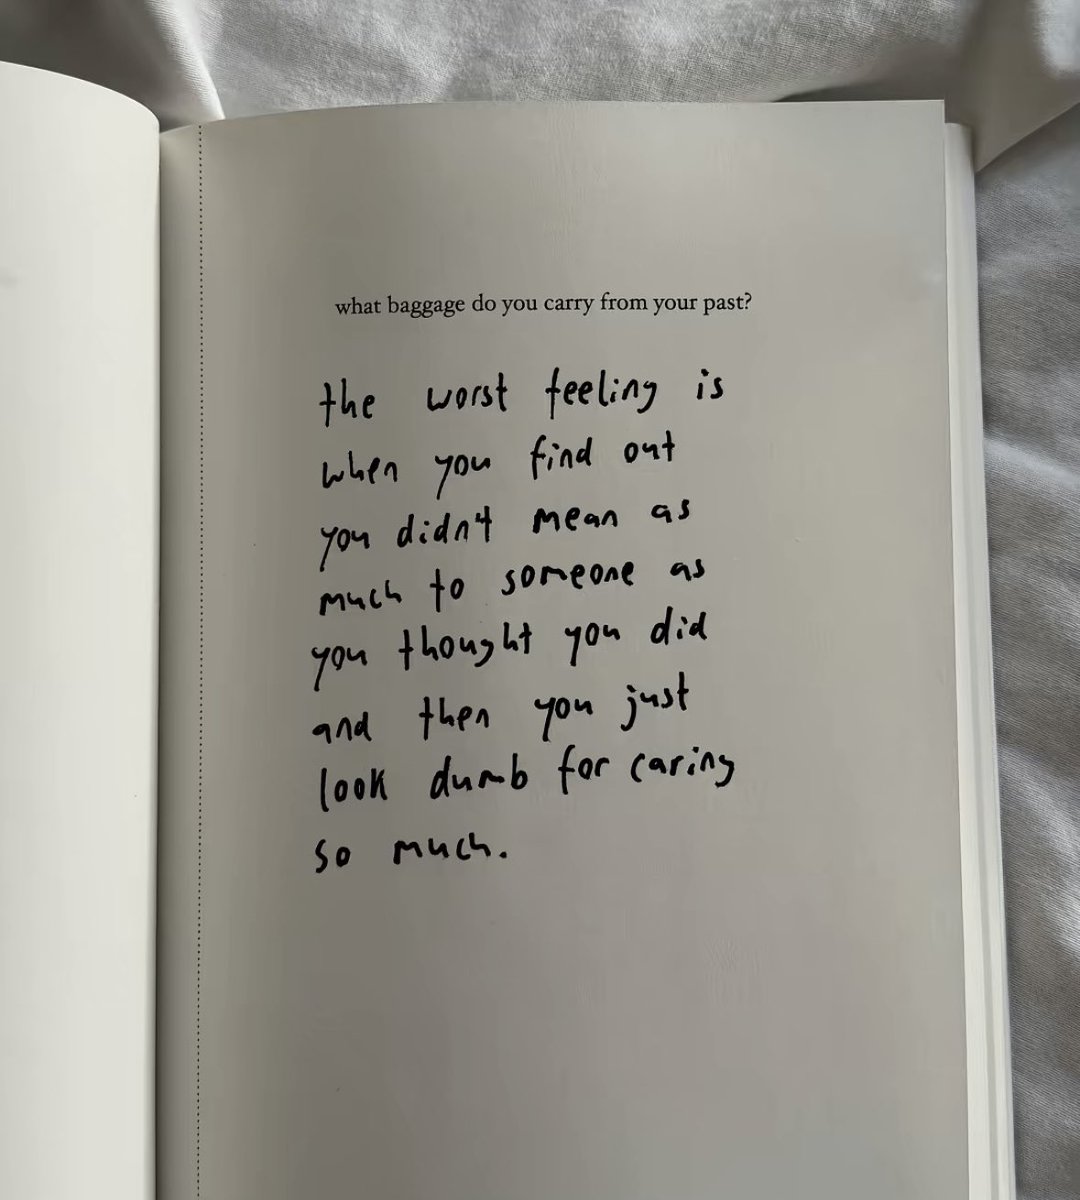 what baggage do you carry from your past?
the worst feeling is
when you find out
you didn't mean as
much to someone as
you thought you did
and then you just
look dumb for caring
so much.